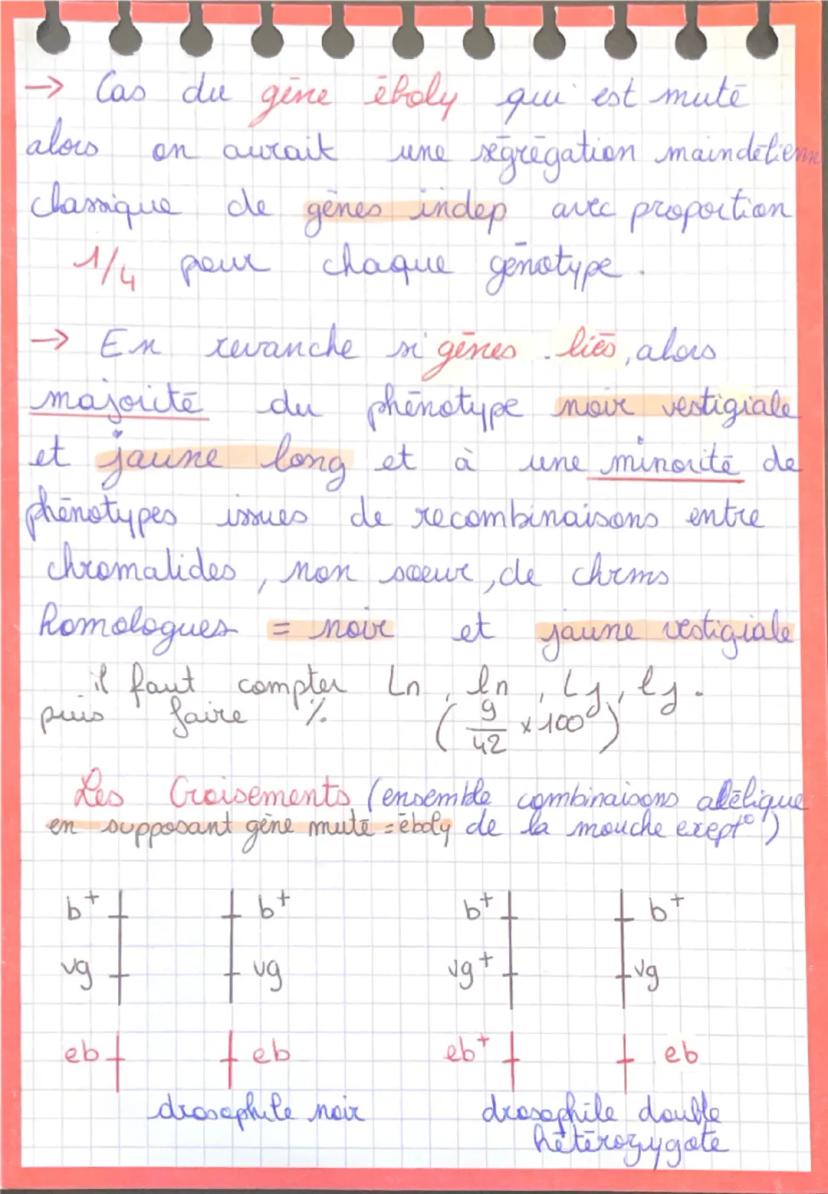 → Cas du gène éboly qui est muté
alors on aurait une ségrégation maindélienn
classique de gènes indep avec proportion
1/4 pour chaque génotype.
→ En revanche si gènes liés, alors
majorité du phénotype noir vestigiale
et jaune long et à une minorité de
phénotypes issues de recombinaisons entre
chromatides, non soeur, de chrms
homologues = noir et jaune vestigiale
il faut compter Ln, ln, Lj, lj.
puis faire % (9/42 x 100)
Les Croisements (ensemble combinaisons alélique
en supposant gène muté = éboly de la mouche exept°)
b+ b+ b+ b+
vg vg vg+ vg
eb eb eb+ eb
drosophile noir drosophile double
hétérozygote